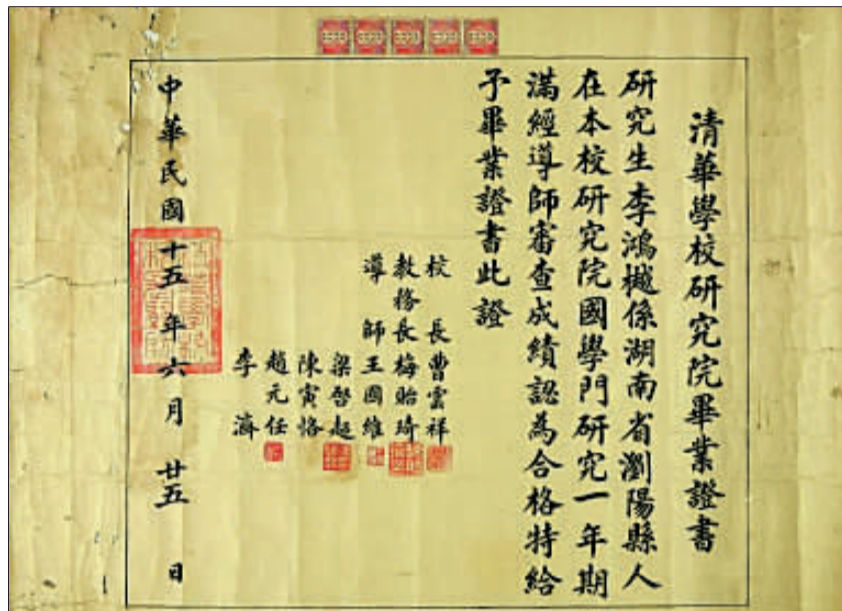 清華學校研究院畢業證書
研究生李鴻樾係湖南省瀏陽縣人
在本校研究院國學門研究一年期
滿經導師審查成績認為合格特給
予畢業證書此證
校長曹雲祥
教務長梅貽琦
導師王國維
梁啓超
陳寅恪
趙元任
李濟
中華民國十五年六月廿五日